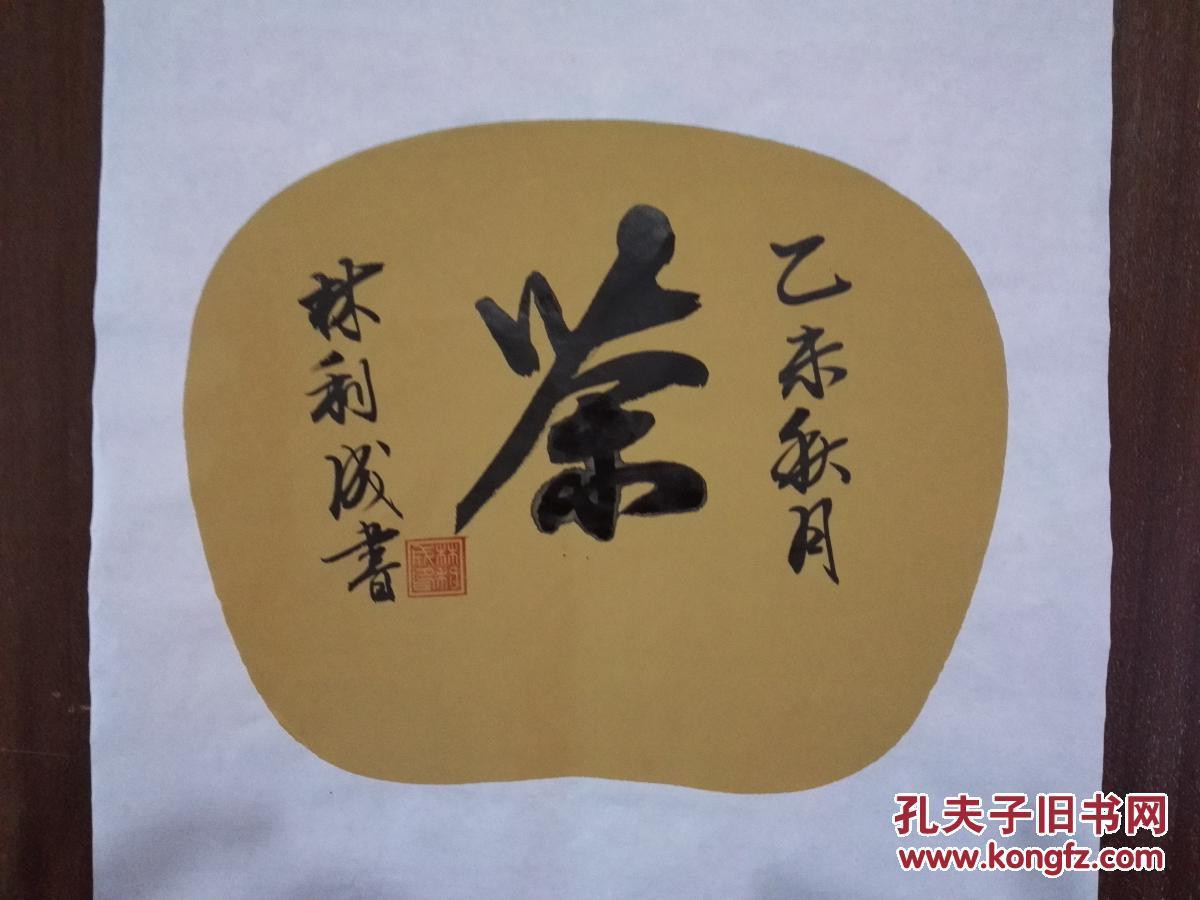 乙未秋月
茶
林利成书
林利成印
孔夫子旧书网
www.kongfz.com